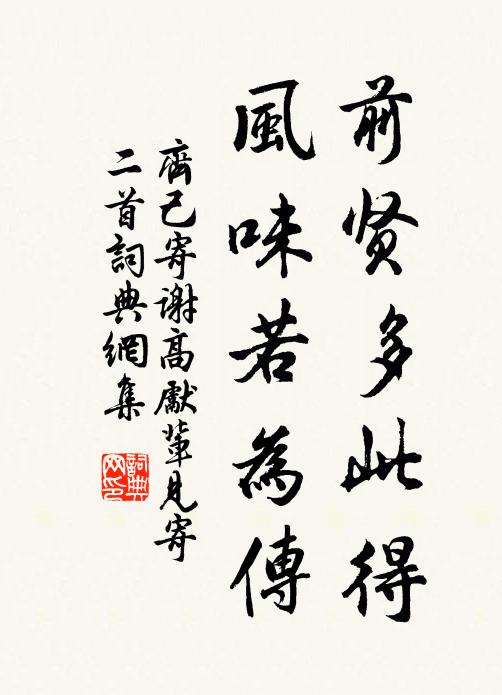 前贤多此得
風味若為傳
齊己寄謝高獻輩見寄
二首詞典網集
詞典
网印